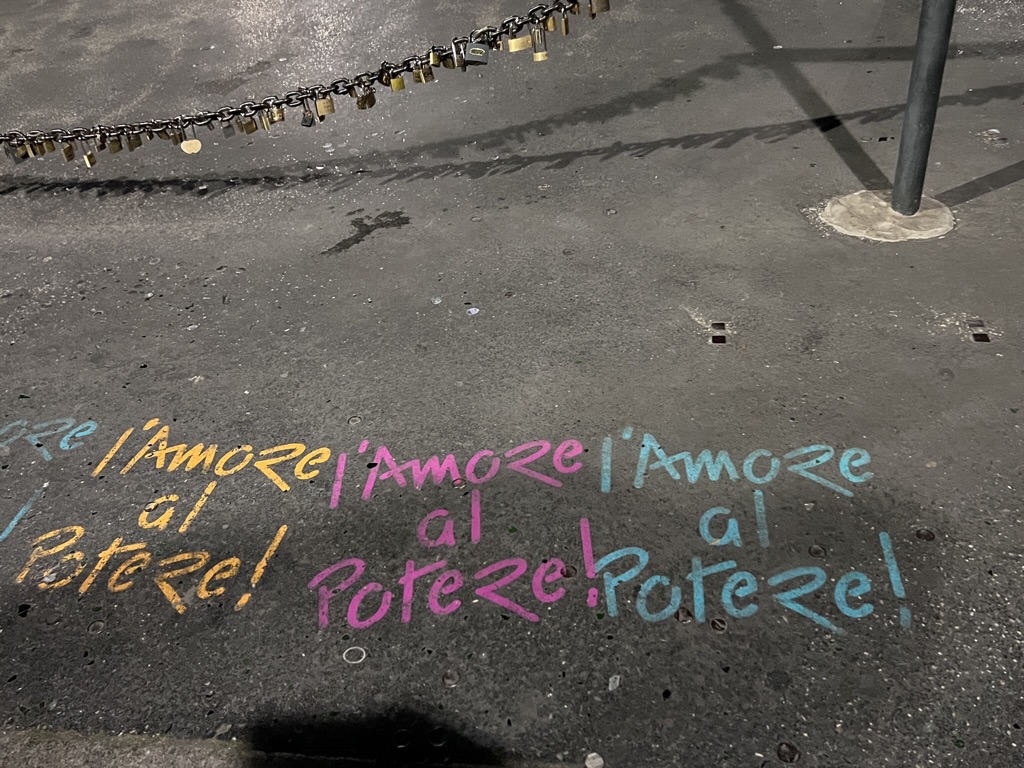 l'Amore
al
Potere!
l'Amore
al
Potere!
l'Amore
al
Potere!